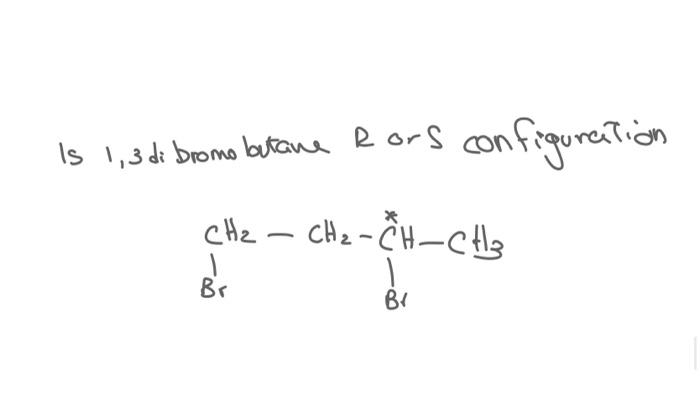 Is 1,3 di bromo butane R or S configuration
*
CH2 — CH2 - CH — CH3
Br Br